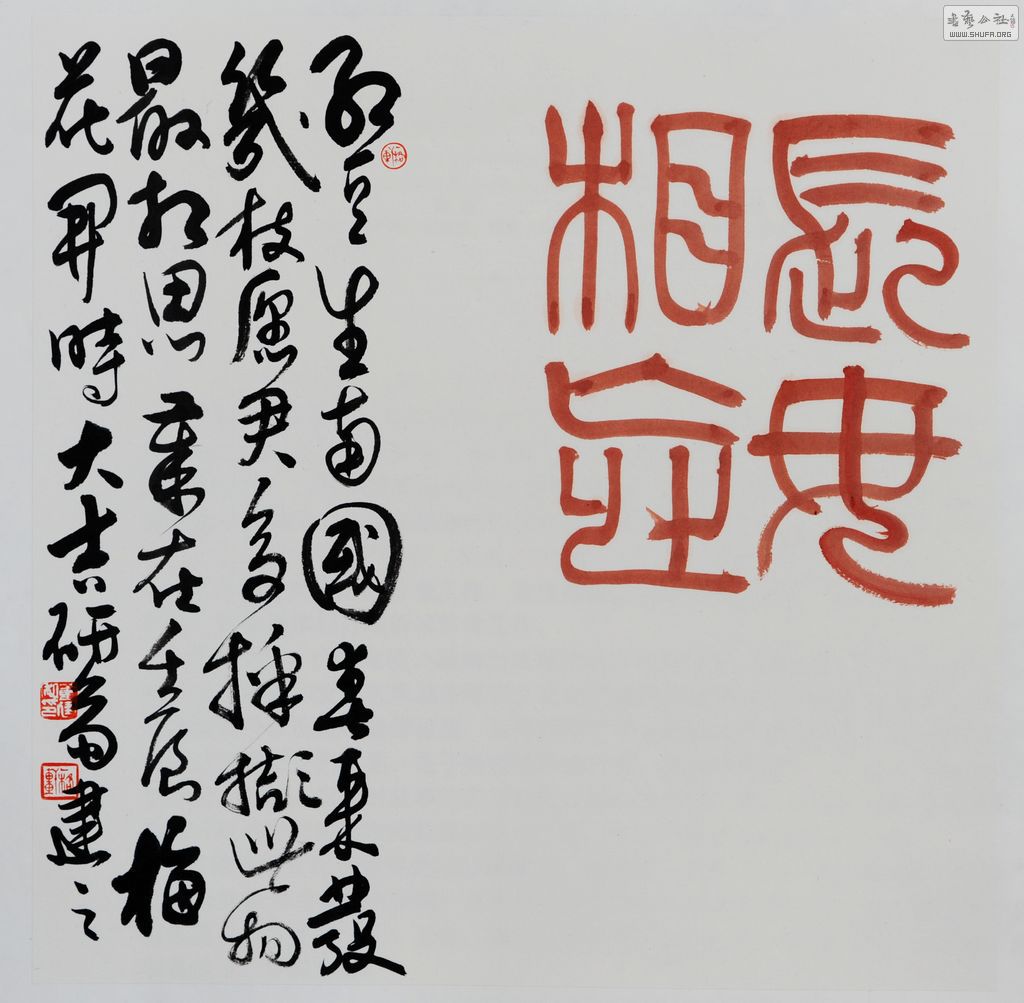 長毋
相忘
紅豆生南國春來發
幾枝愿君多採擷此物
最相思 歲在壬辰梅
花開時大吉研建之
書藝公社
WWW.SHUFA.ORG